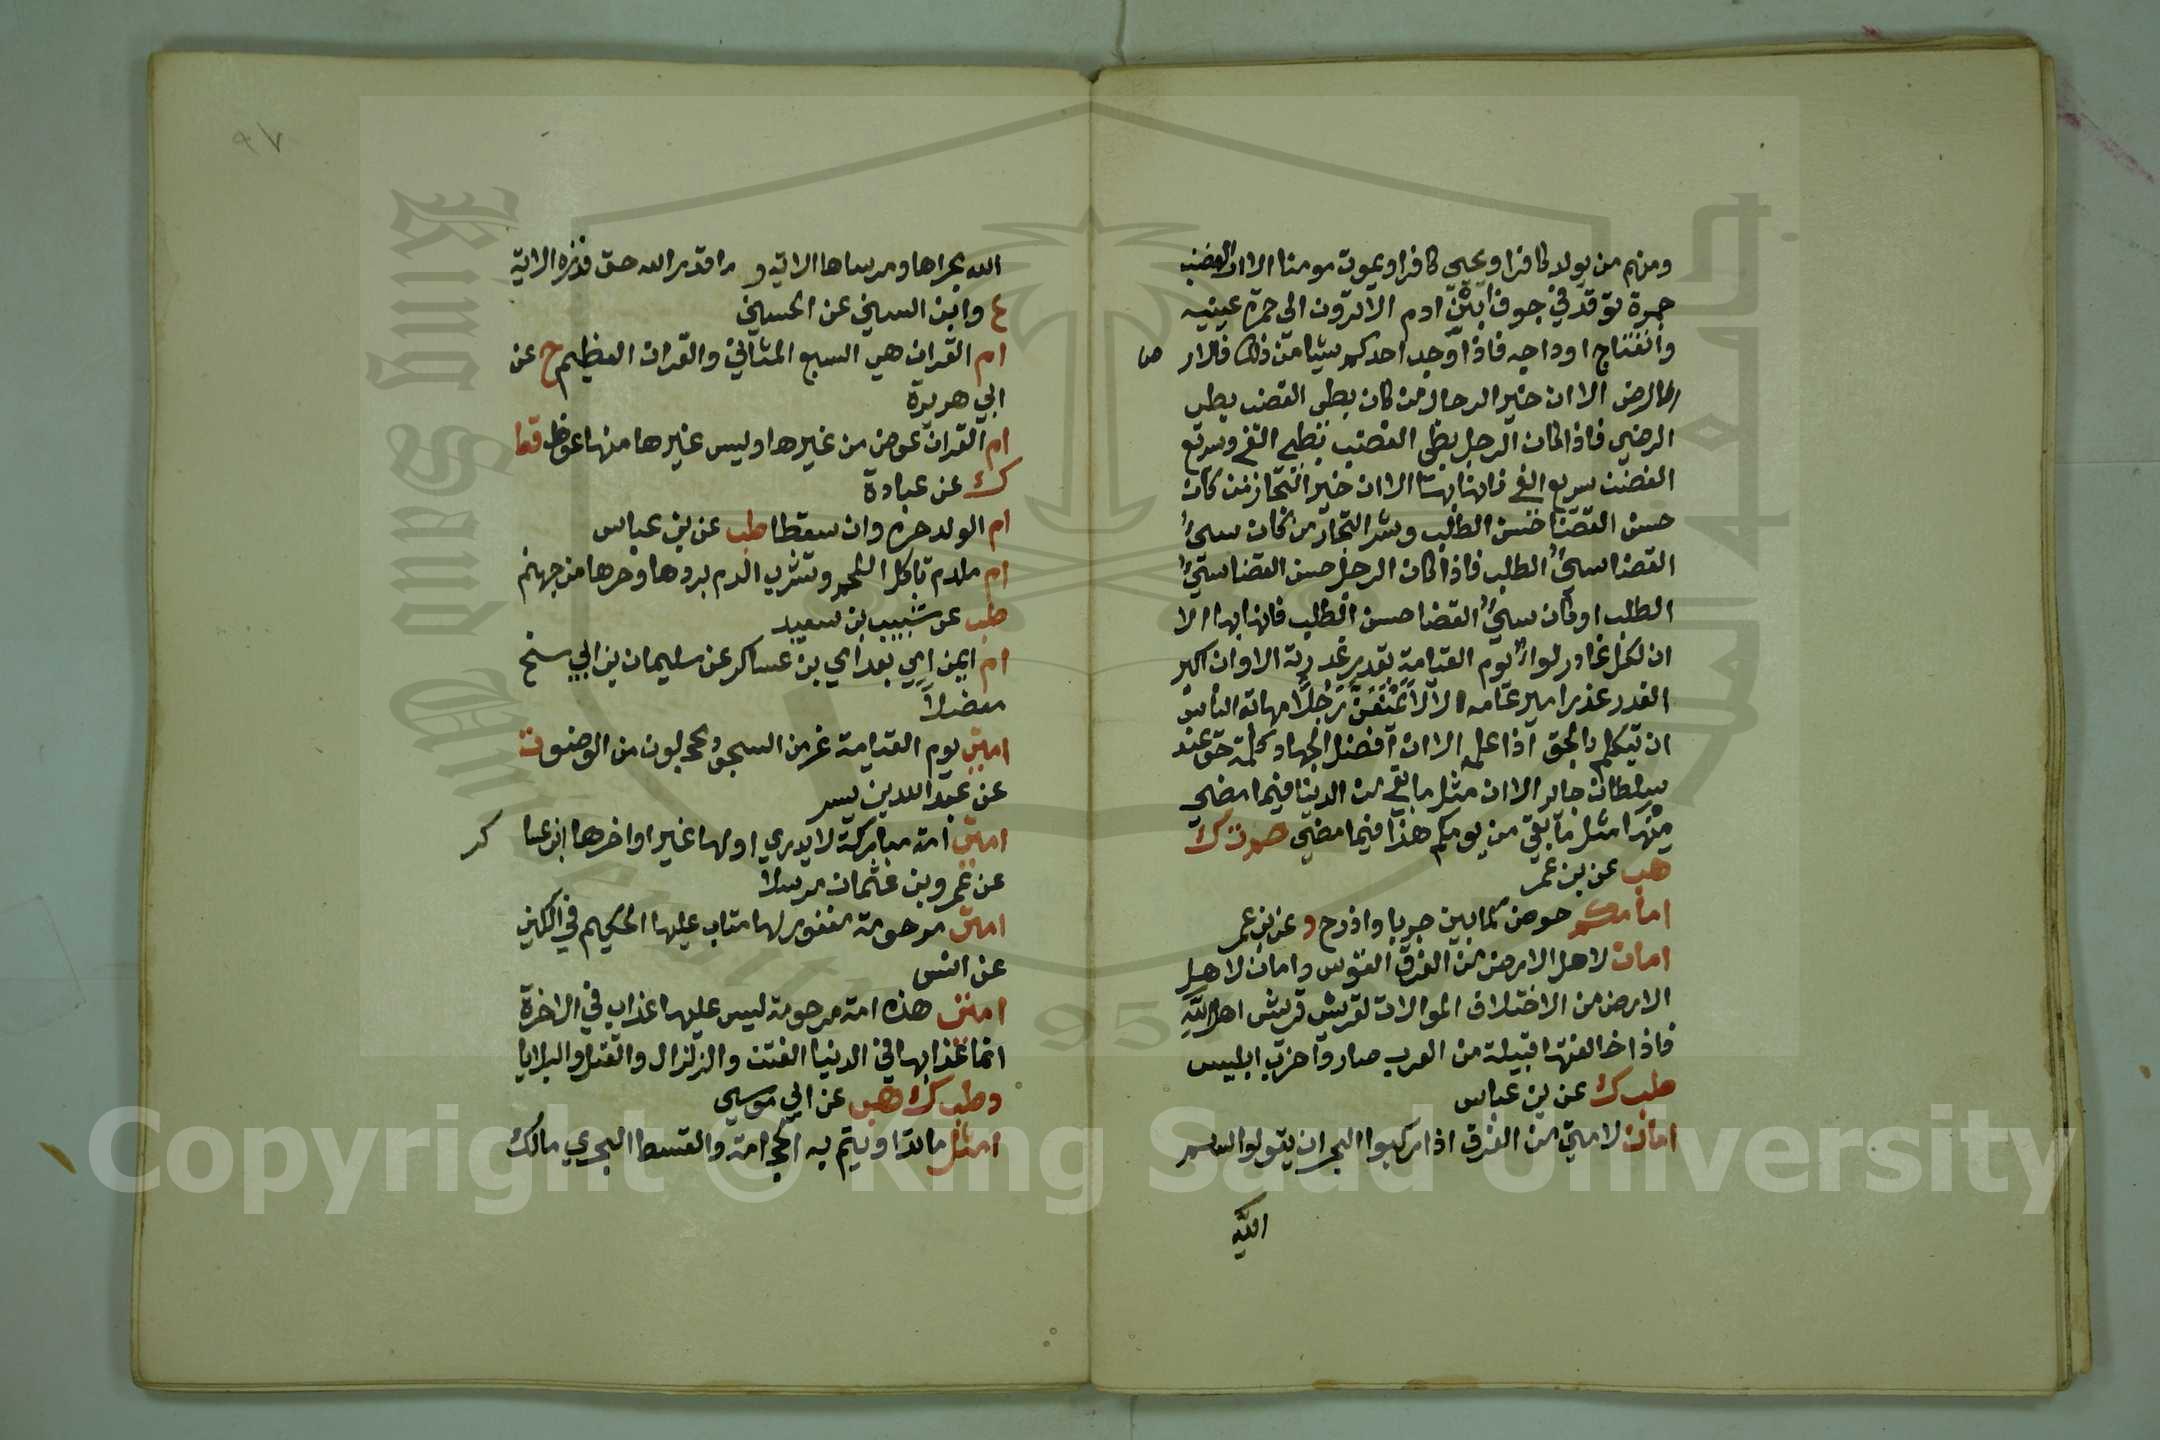 ومنهم من يولد كافرا ويحيى كافرا ويموت مومنا الا ان الغضب
جمرة توقد في جوف ابن ادم الا ترون الى حمرة عينيه
وانتفاخ اوداجه فاذا وجد احدكم شيا من ذلك فالارض
الارض الا ان خير الرجال من كان بطي الغضب بطي
الرضى فاذا كان الرجل بطي الغضب بطي الفي وسريع
الغضب سريع الفي فانها بها الا ان خير التجار من كان
حسن القضا حسن الطلب وشر التجار من كان سيئ
القضا سيئ الطلب فاذا كان الرجل حسن القضا سيئ
الطلب او كان سيئ القضا حسن الطلب فانها بها الا
ان لكل غادر لواء يوم القيامة بقدر غدرته الا وان اكبر
الغدر غدر امير عامه الا لا يمنعن رجلا مهابة الناس
ان يتكلم بالحق اذا علمه الا ان افضل الجهاد كلمة حق عند
سلطان جاير الا ان مثل ما بقي من الدنيا فيما مضى
منها مثل ما بقي من يومكم هذا فيما مضى حم ت ك
هب عن بن عمر
امامكم حوض كما بين جربا واذرح و عن بن عمر
امان لاهل الارض من الغرق القوس وامان لاهل
الارض من الاختلاف الموالات لقريش قريش اهل الله
فاذا خالفتها قبيلة من العرب صاروا حزب ابليس
طب ك عن بن عباس
امان لامتي من الغرق اذا ركبوا البحر ان يقولوا بسم
الله
٩٧
الله مجراها ومرساها الاية و ما قدروا الله حق قدره الاية
ع وابن السني عن الحسين
ام القران هي السبع المثاني والقران العظيم خ عن
ابي هريرة
ام القران عوض من غيرها وليس غيرها منها عوض قط
ك عن عبادة
ام الولد حرة وان سقطا طب عن بن عباس
ام ملدم تاكل اللحم وتشرب الدم بردها وحرها من جهنم
طب عن شبيب بن سعيد
ام ايمن امي بعد امي بن عساكر عن سليمان بن ابي شيخ
معضلا
امتي يوم القيامة غر من السجود محجلون من الوضو ت
عن عبد الله بن بسر
امتي امة مباركة لا يدري اولها خير او اخرها ابن عسا كر
عن عمرو بن عثمان مرسلا
امتي مرحومة مغفور لها متاب عليها الحكيم في الكنى
عن انس
امتي هذه امة مرحومة ليس عليها عذاب في الاخرة
انما عذابها في الدنيا الفتن والزلزال والقتل والبلايا
د طب ك هب عن ابي موسى
امثل ما تداويتم به الحجامة والقسط البحري مالك
King Saud University
جامعة الملك سعود
1957
Copyright © King Saud University